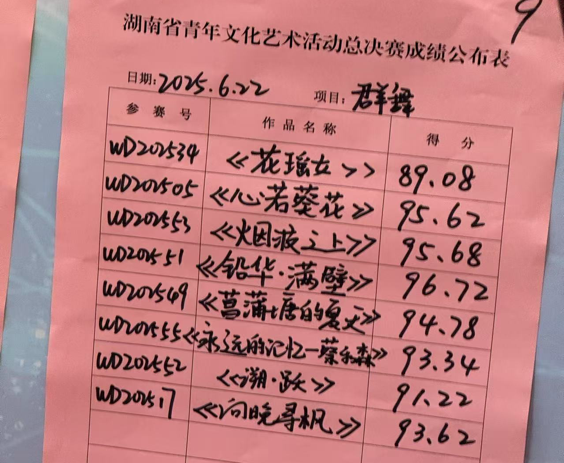 9
湖南省青年文化艺术活动总决赛成绩公布表
日期：2025.6.22 项目：群舞
参赛号 作品名称 得分
WD202534 《花瑶女》 89.08
WD202505 《心若葵花》 95.62
WD202553 《烟波之上》 95.68
WD202551 《铅华·满壁》 96.72
WD202549 《菖蒲塘的夏天》 94.78
WD202555 《永远的记忆—蔡和森》 93.34
WD202552 《溯·跃》 91.22
WD202517 《向晚寻枫》 93.62